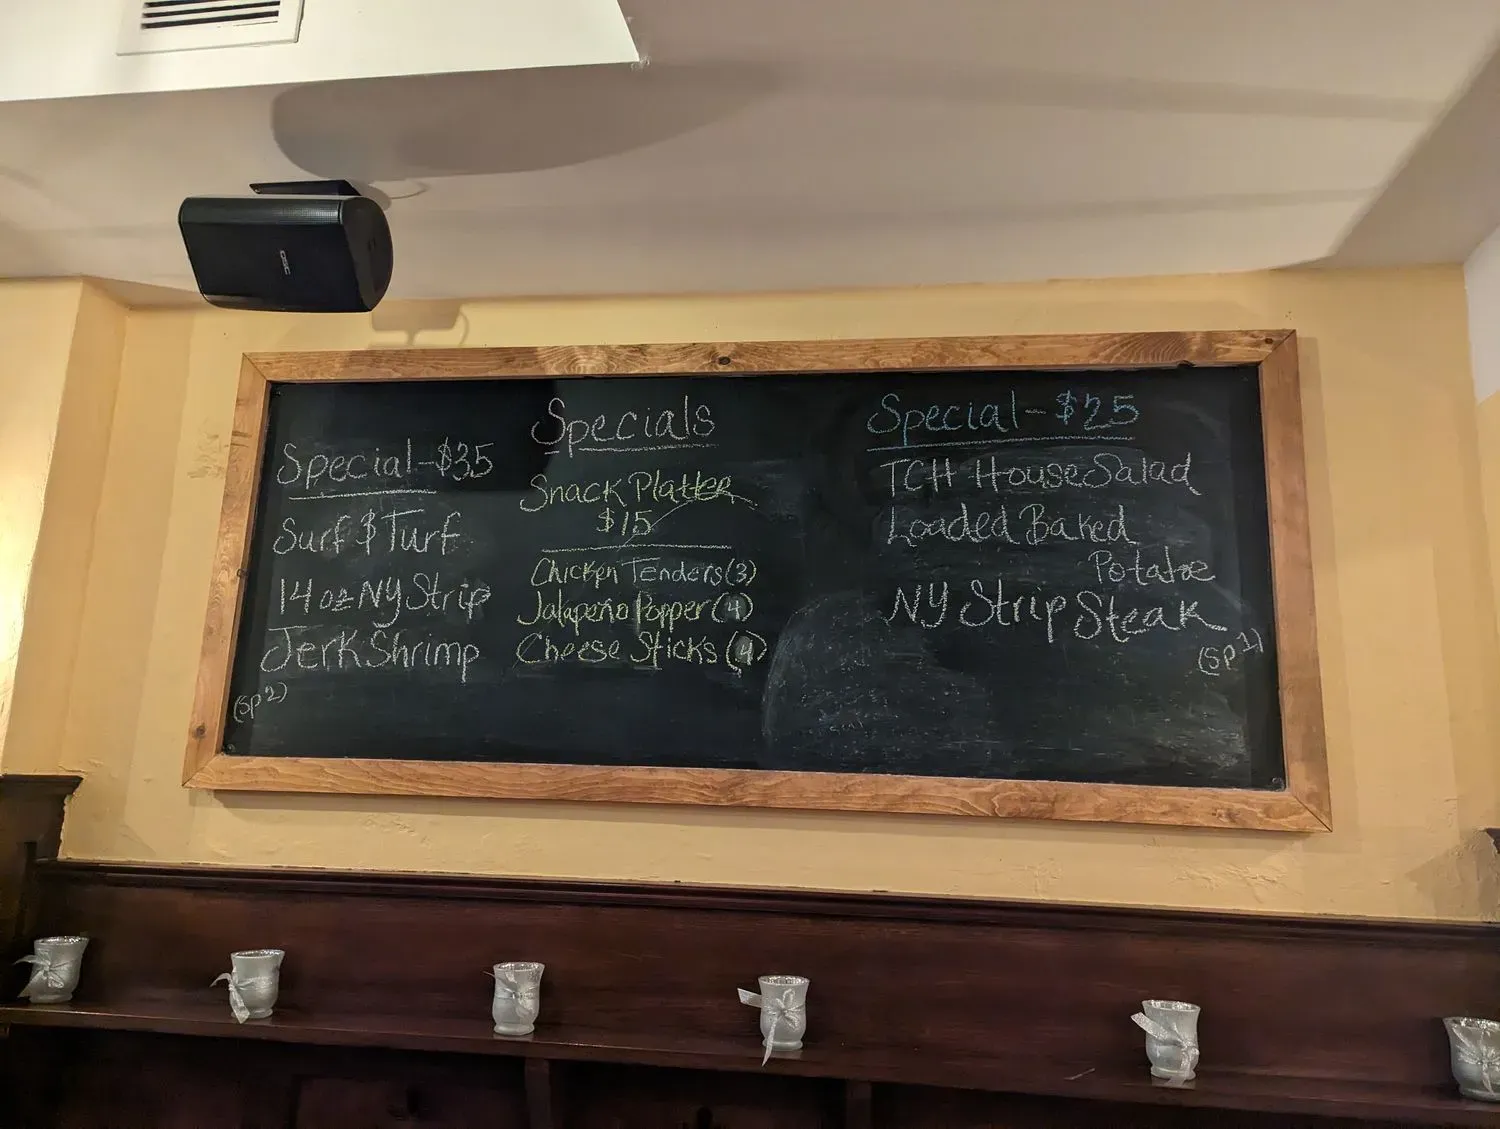 QSC
Specials
Special-$35
Surf & Turf
14oz NY Strip
Jerk Shrimp
(Sp 2)
Snack Platter
$15
Chicken Tenders (3)
Jalapeño Popper (4)
Cheese Sticks (4)
Special-$25
TCH House Salad
Loaded Baked
Potatoe
NY Strip Steak
(Sp 1)